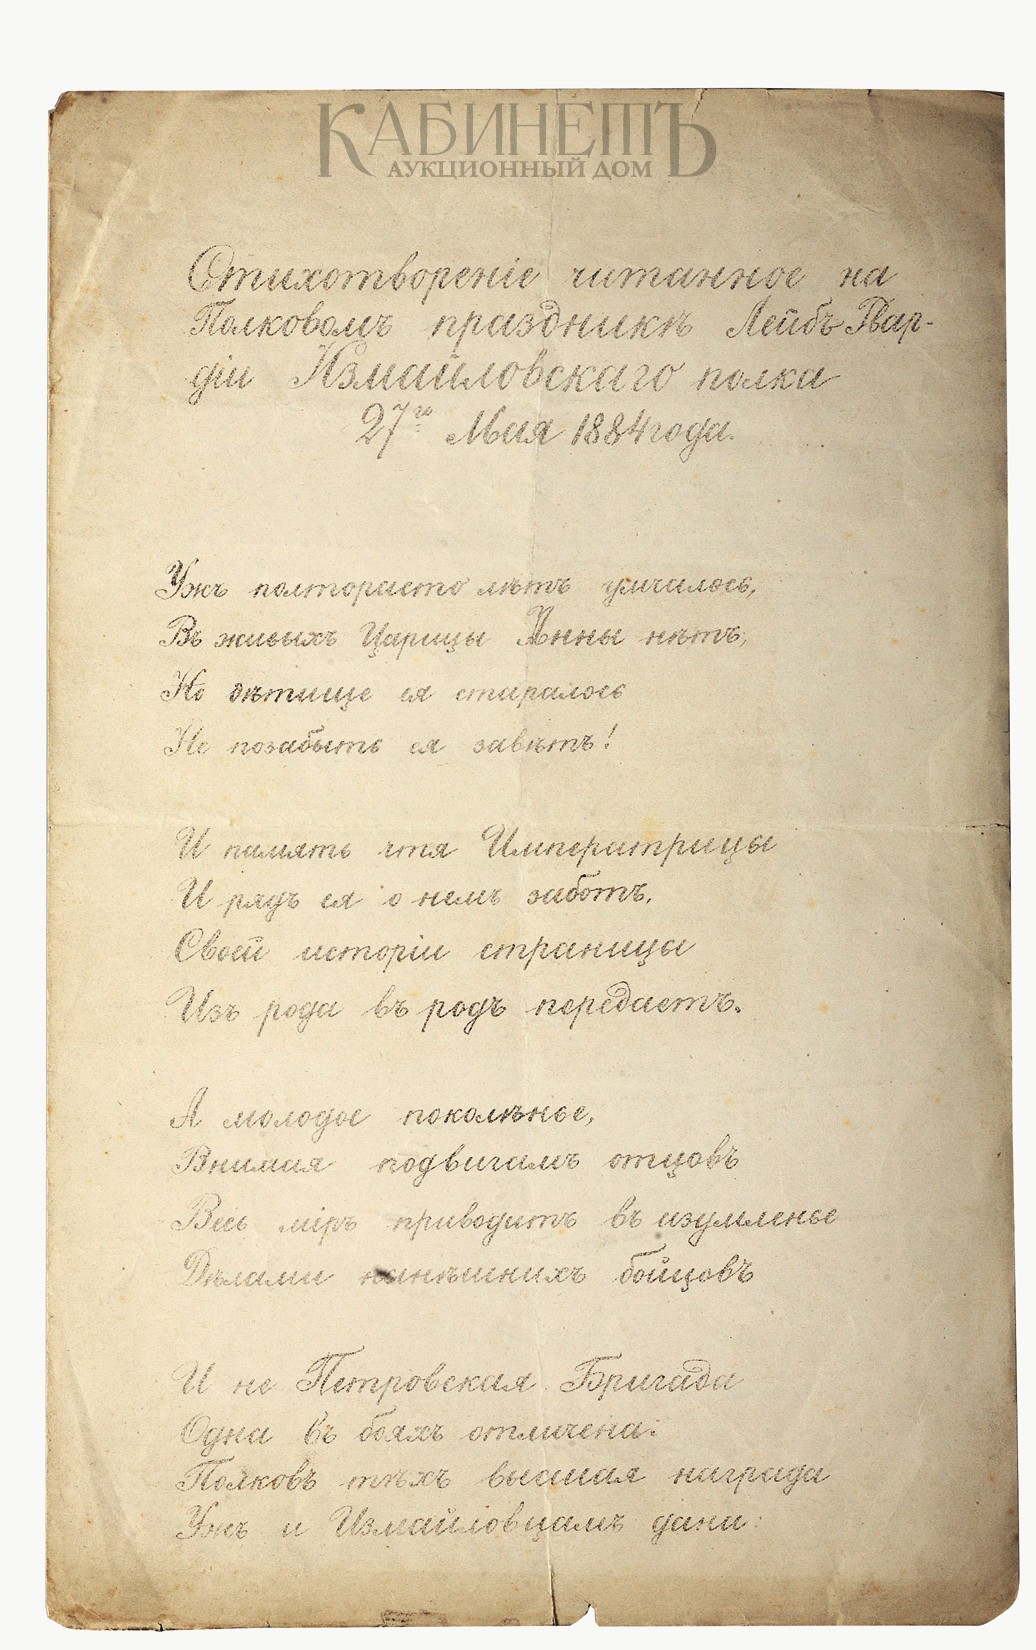 КАБИНЕТЪ
АУКЦИОННЫЙ ДОМ
Стихотвореніе читанное на
Полковомъ праздникѣ Лейбъ Гвар-
діи Измайловскаго полка
27го Мая 1884 года.
Ужъ полтораста лѣтъ умчалось,
Въ живыхъ Царицы Анны нѣтъ;
Но дѣтище ея старалось
Не позабыть ея завѣтъ!
И память чтя Императрицы
И рядъ ея о немъ заботъ,
Своей исторіи страницы
Изъ рода въ родъ передаетъ.
А молодое поколѣнье,
Внимая подвигамъ отцовъ
Весь міръ приводитъ въ изумленье
Дѣлами нынѣшнихъ бойцовъ
И не Петровская Бригада
Одна въ бояхъ отличена:
Полковъ тѣхъ высшая награда
Ужъ и Измайловцамъ дана: